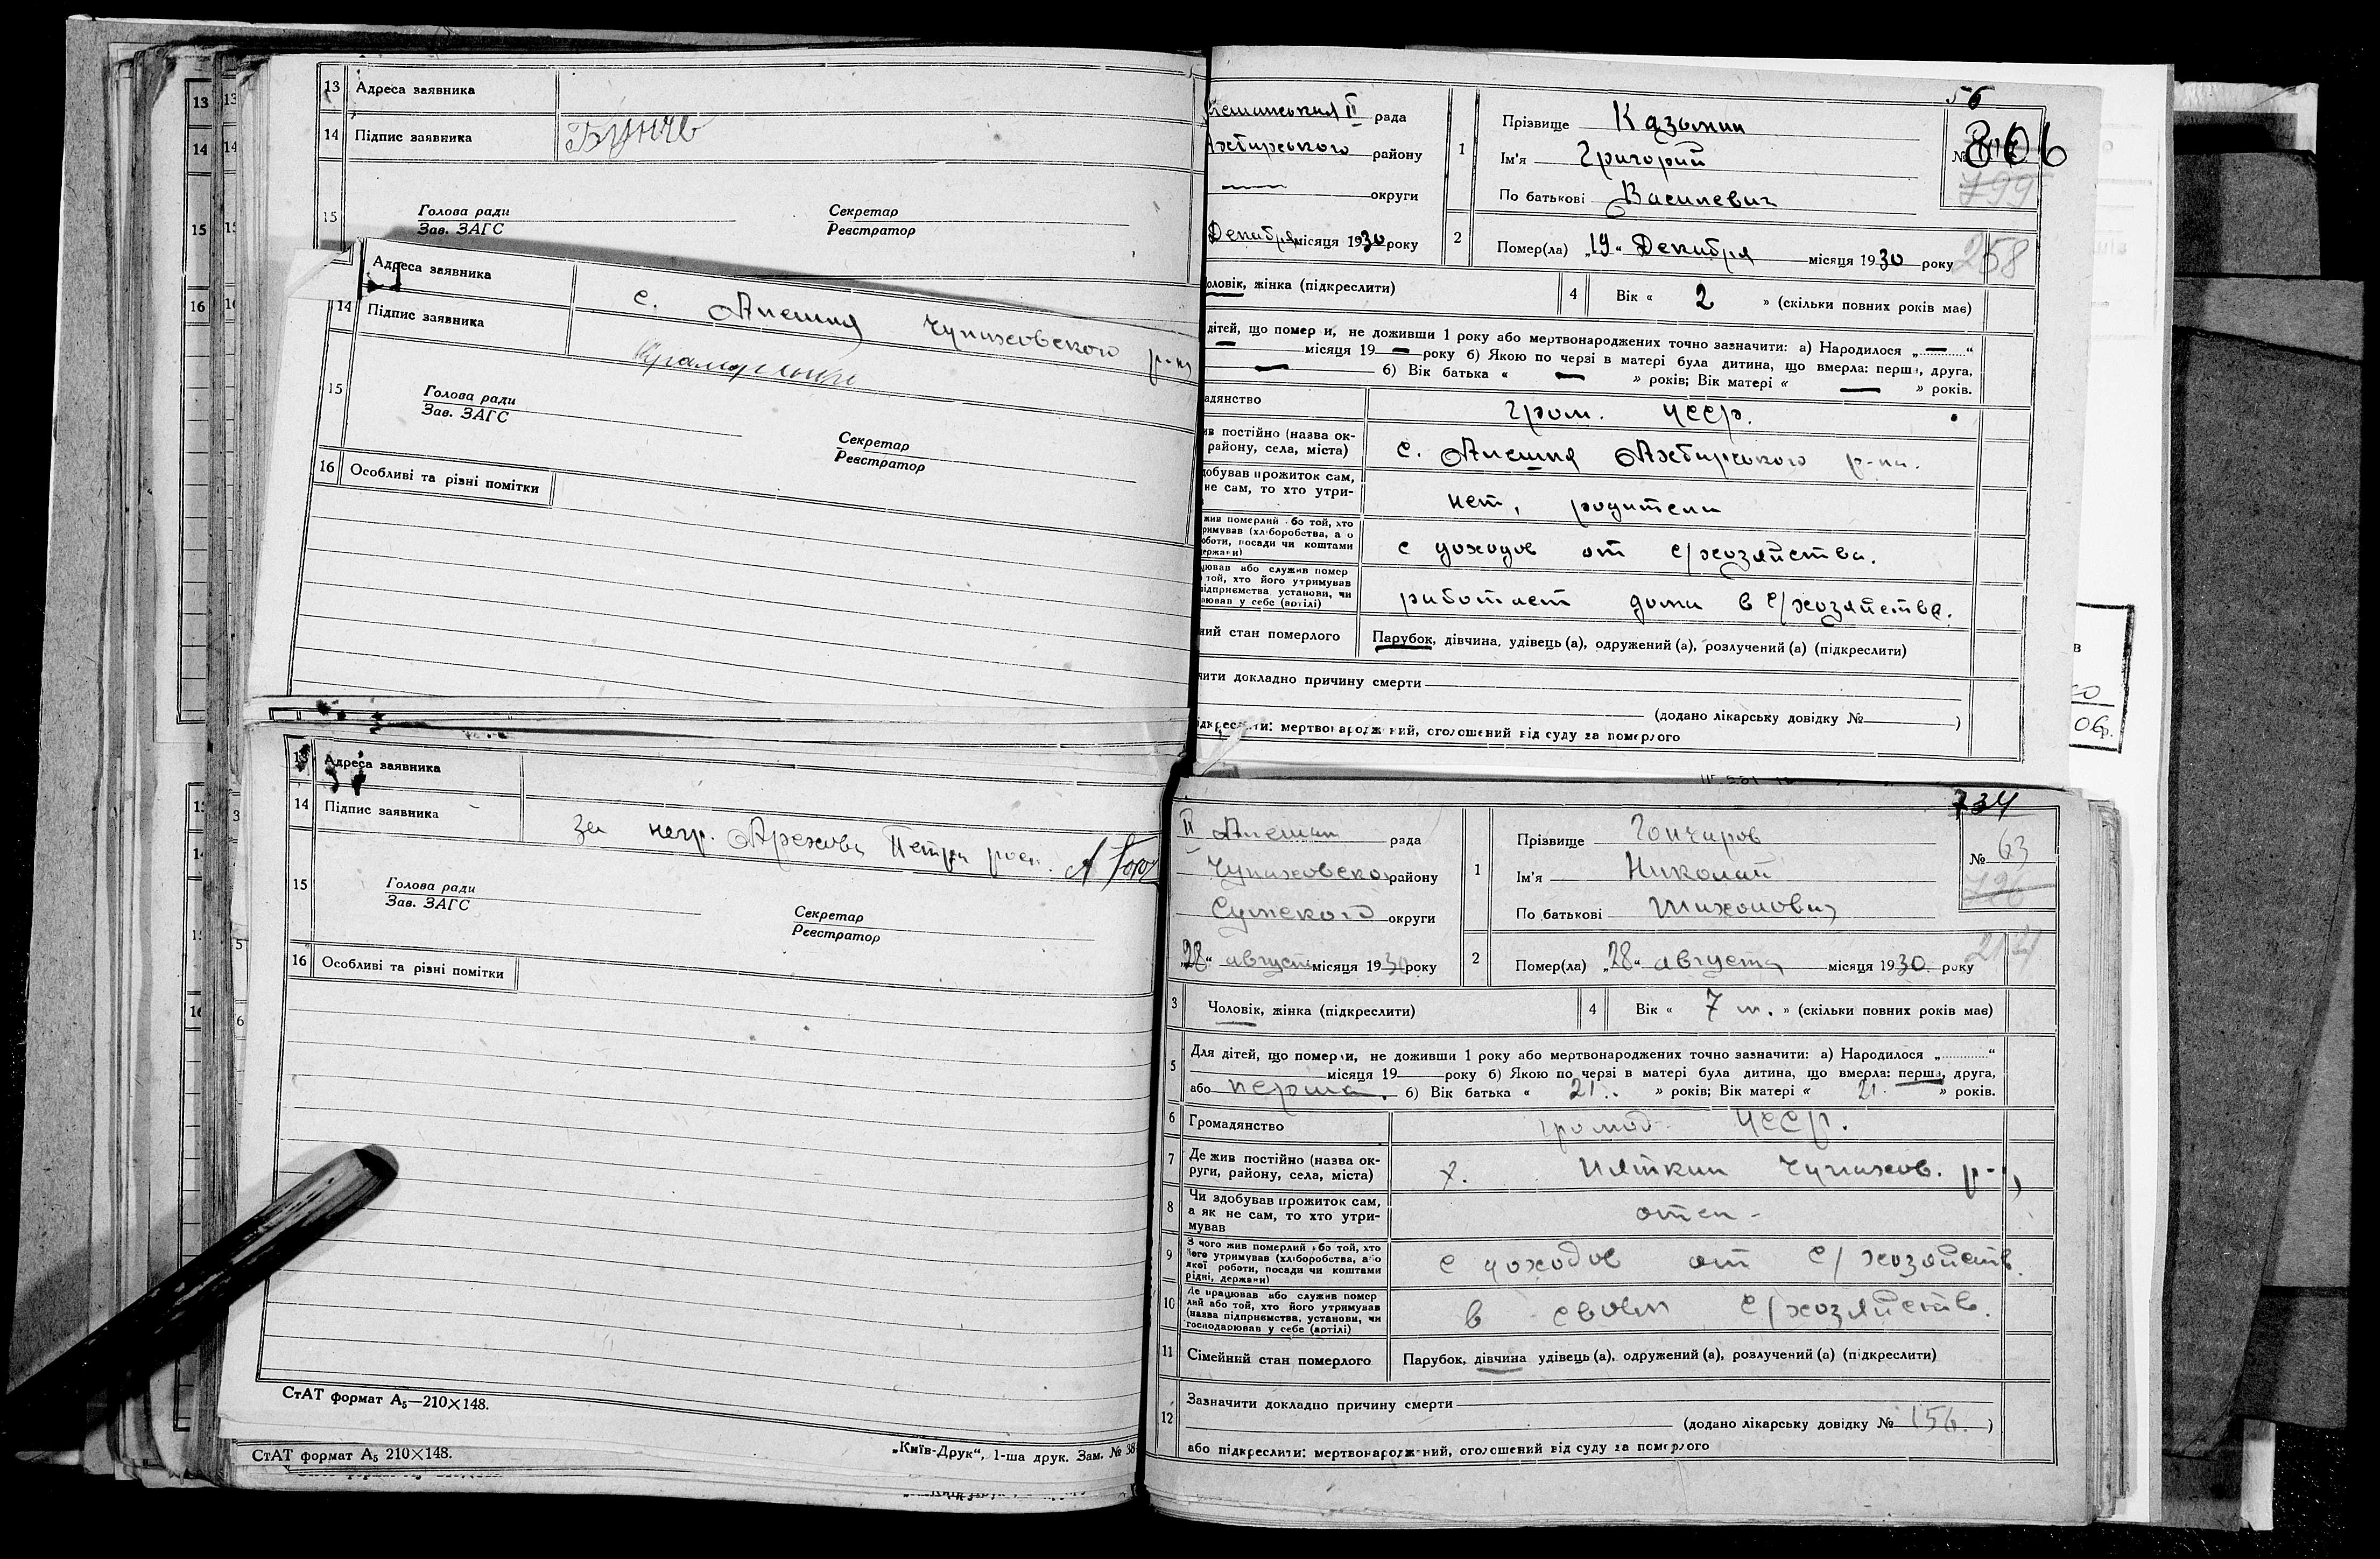 13 Адреса заявника
14 Підпис заявника
15 Голова ради
Зав. ЗАГС
Секретар
Реєстратор
Адреса заявника с. Алешня Чупаховского р-на
14 Підпис заявника
15 Голова ради
Зав. ЗАГС
Секретар
Реєстратор
16 Особливі та різні помітки
13 Адреса заявника
14 Підпис заявника За негр. Арехова Петра росп.
15 Голова ради
Зав. ЗАГС
Секретар
Реєстратор
16 Особливі та різні помітки
СтАТ формат А5—210×148.
СтАТ формат А5 210×148.
„Київ-Друк“, 1-ша друк. Зам. № 38
56
806
799
258
рада
Ахтирського району
округи
Декабря місяця 1930 року
1 Прізвище Казьмин
Ім'я Григорий
По батькові Василевич
№
2 Помер(ла) „19“ Декабря місяця 1930 року
оловік, жінка (підкреслити)
4 Вік « 2 » (скільки повних років має)
дітей, що помер и, не доживши 1 року або мертвонароджених точно зазначити: а) Народилося „ — “
— місяця 19 — року б) Якою по черзі в матері була дитина, що вмерла: перша, друга,
— б) Вік батька « — » років; Вік матері « — » років.
адянство гром. УССР.
ив постійно (назва ок-
району, села, міста) с. Алешня Ахтирського р-на.
добував прожиток сам,
не сам, то хто утри- нет, родители
жив померлий або той, хто
римував (хліборобства, а о
оботи, посади чи коштами
ержави) с доходов от с/хозяйства.
цював або служив помер
той, хто його утримував
ідприємства установи, чи
ював у себе (артілі) работает дома в с/хозяйстве.
ний стан померлого Парубок, дівчина, удівець (а), одружений (а), розлучений (а) (підкреслити)
чити докладно причину смерти
(додано лікарську довідку № )
ідкреслити: мертвонароджений, оголошений від суду за померлого
734
II Алешан рада
Чупаховско району
Сумского округи
„28“ август місяця 1930 року
1 Прізвище Гончаров
Ім'я Николай
По батькові Тихонович
№ 63
2 Помер(ла) „28“ августа місяця 1930 року
3 Чоловік, жінка (підкреслити)
4 Вік « 7 м. » (скільки повних років має)
5 Для дітей, що померли, не доживши 1 року або мертвонароджених точно зазначити: а) Народилося „ “
місяця 19 року б) Якою по черзі в матері була дитина, що вмерла: перша, друга,
або перша. б) Вік батька « 21 » років; Вік матері « 21 » років.
6 Громадянство громад. УССР.
7 Де жив постійно (назва ок-
руги, району, села, міста) х. Пяткин Чупахов. р-
8 Чи здобував прожиток сам,
а як не сам, то хто утри-
мував отец
9 З чого жив померлий або той, хто
його утримував (хліборобства, або
якої роботи, посади чи коштами
рідні, держави) с доходов от с/хозяйств.
10 Де працював або служив помер
лий або той, хто його утримував
(назва підприємства, установи, чи
господарював у себе (артілі) в своем с/хозяйств.
11 Сімейний стан померлого Парубок, дівчина удівець (а), одружений (а), розлучений (а) (підкреслити)
12 Зазначити докладно причину смерти
(додано лікарську довідку № 156. )
або підкреслити: мертвонароджений, оголошений від суду за померлого